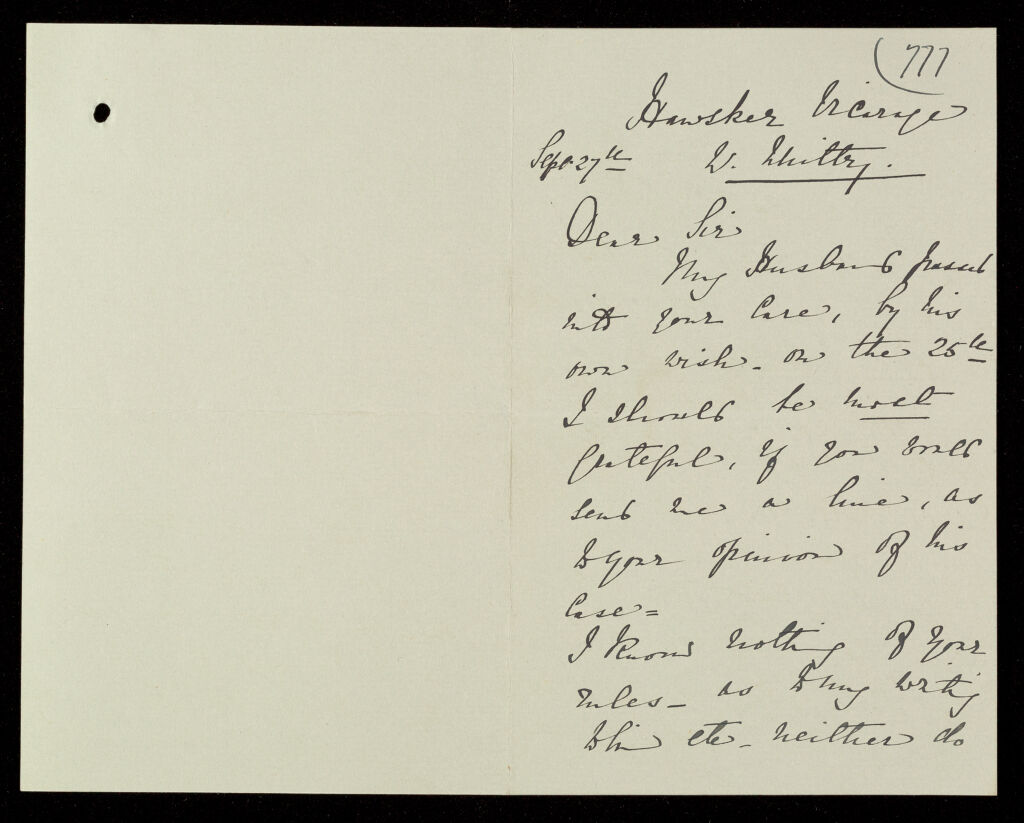 777
Hawsker Vicarage
Sept 27th W. Whitby.
Dear Sir
My Husband passed
into your Care, by his
own wish - on the 25th
I should be most
grateful, if you would
send me a line, as
to your opinion of his
Case =
I know nothing of your
rules - as to my writing
to him etc - neither do